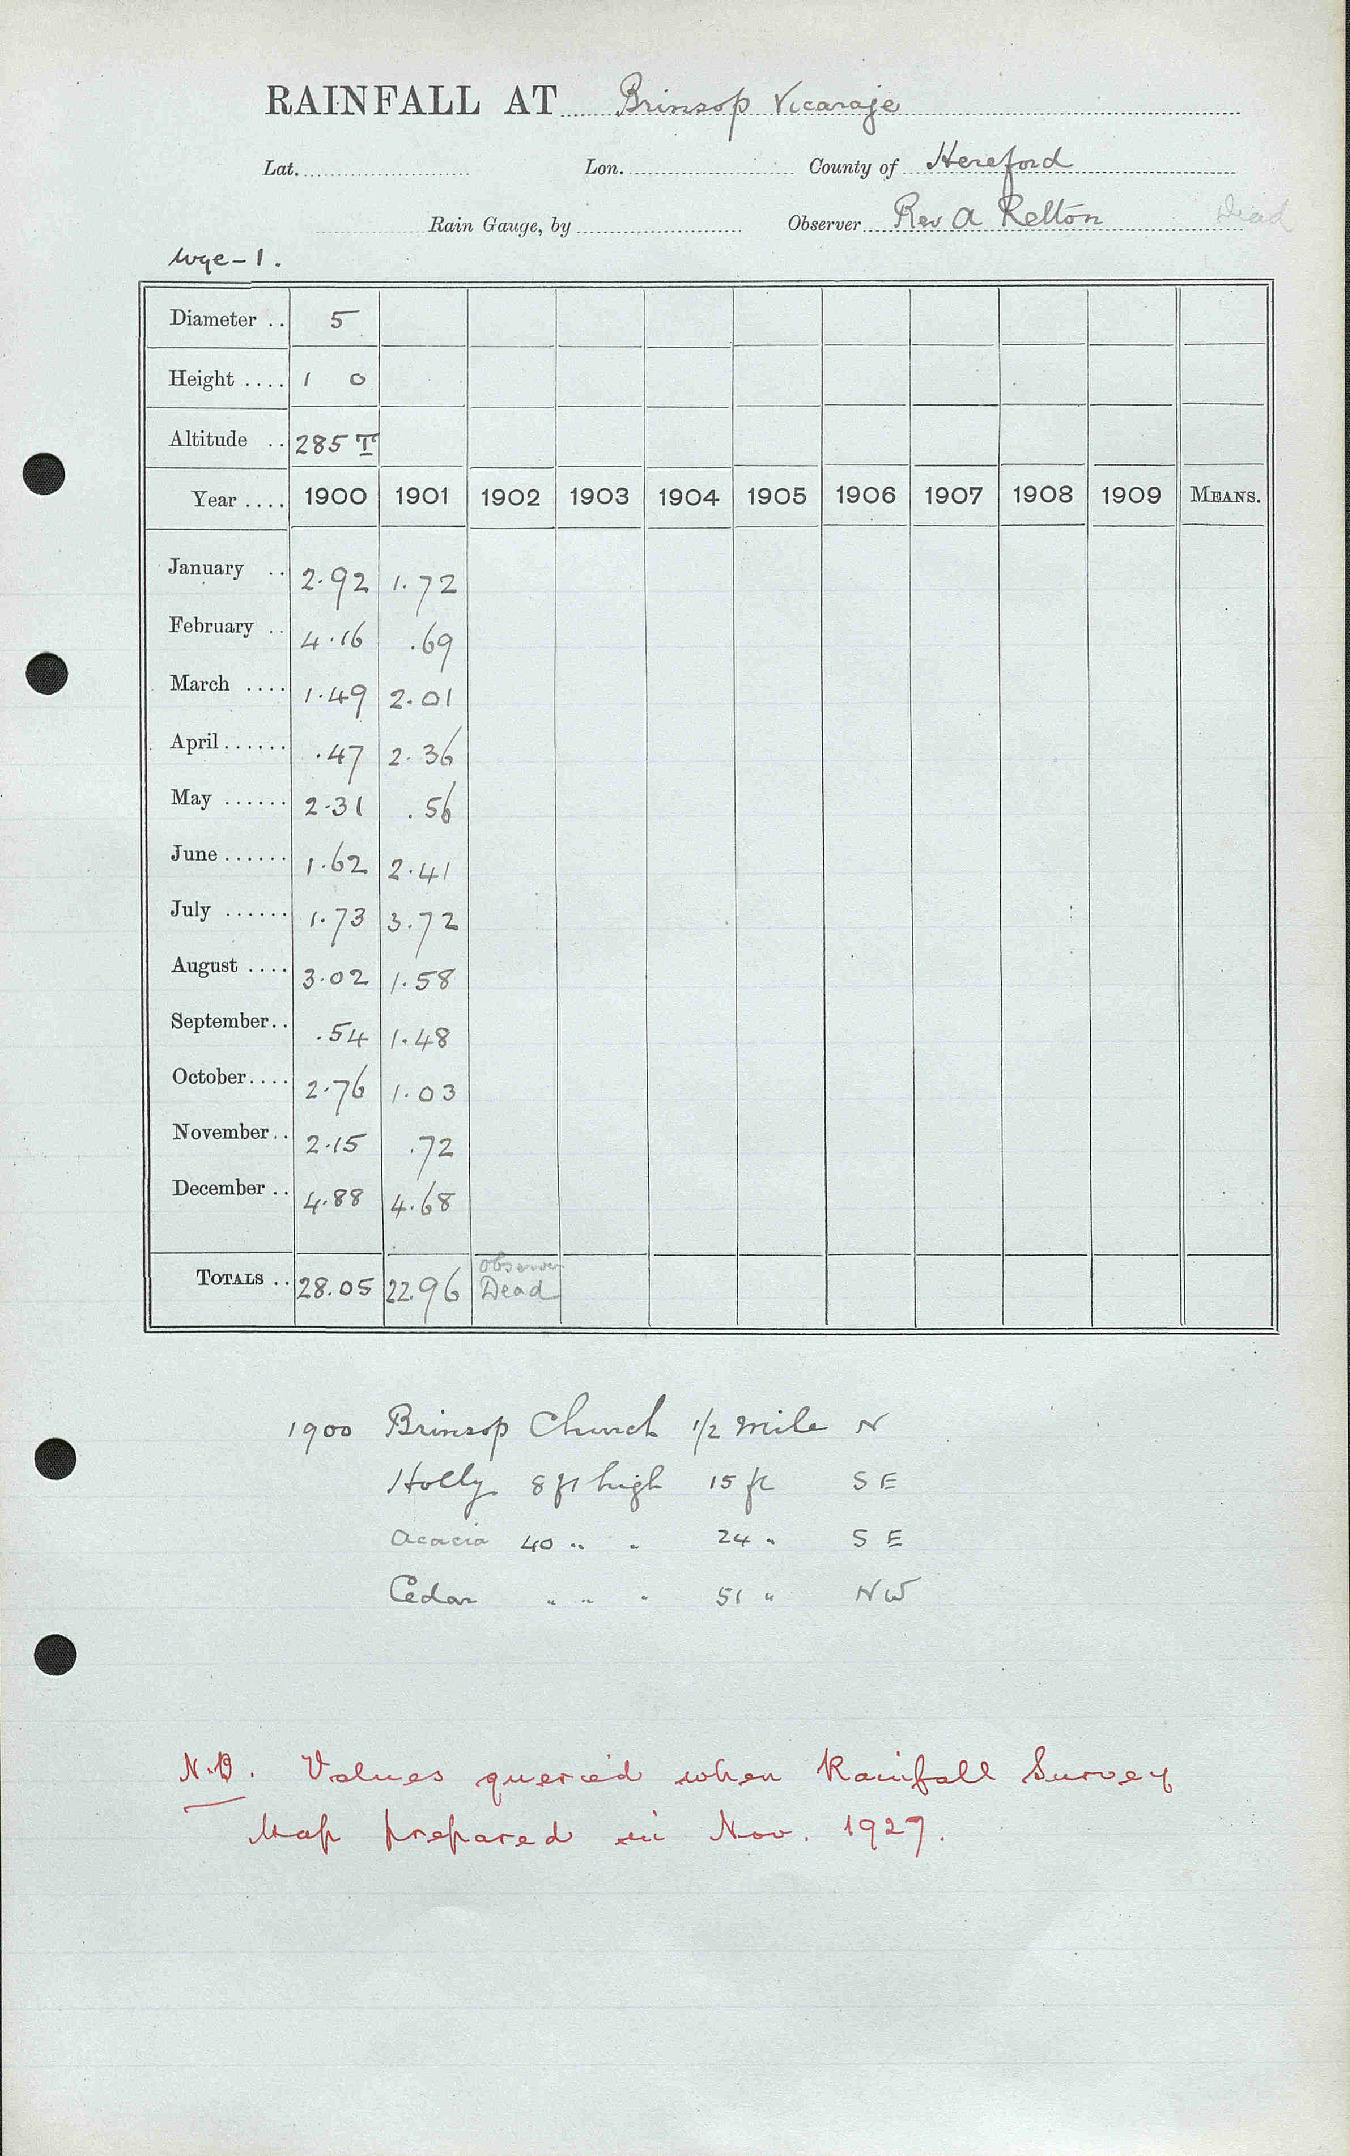 RAINFALL AT Brinsop Vicarage
Lat. Lon. County of Hereford
Rain Gauge, by Observer Rev A Relton Dead
Wye - 1.
Diameter .. 5
Height .... 1 0
Altitude .. 285 T
Year .... 1900 1901 1902 1903 1904 1905 1906 1907 1908 1909 MEANS.
January .. 2.92 1.72
February .. 4.16 .69
March .... 1.49 2.01
April ...... .47 2.36
May ...... 2.31 .56
June ...... 1.62 2.41
July ...... 1.73 3.72
August .... 3.02 1.58
September.. .54 1.48
October.... 2.76 1.03
November.. 2.15 .72
December .. 4.88 4.68
Observer
TOTALS .. 28.05 22.96 Dead
1900 Brinsop Church 1/2 mile N
Holly 8 ft high 15 ft SE
Acacia 40 " " 24 " SE
Cedar " " " 51 " NW
N.B. Values queried when Rainfall Survey
Map prepared in Nov. 1927.